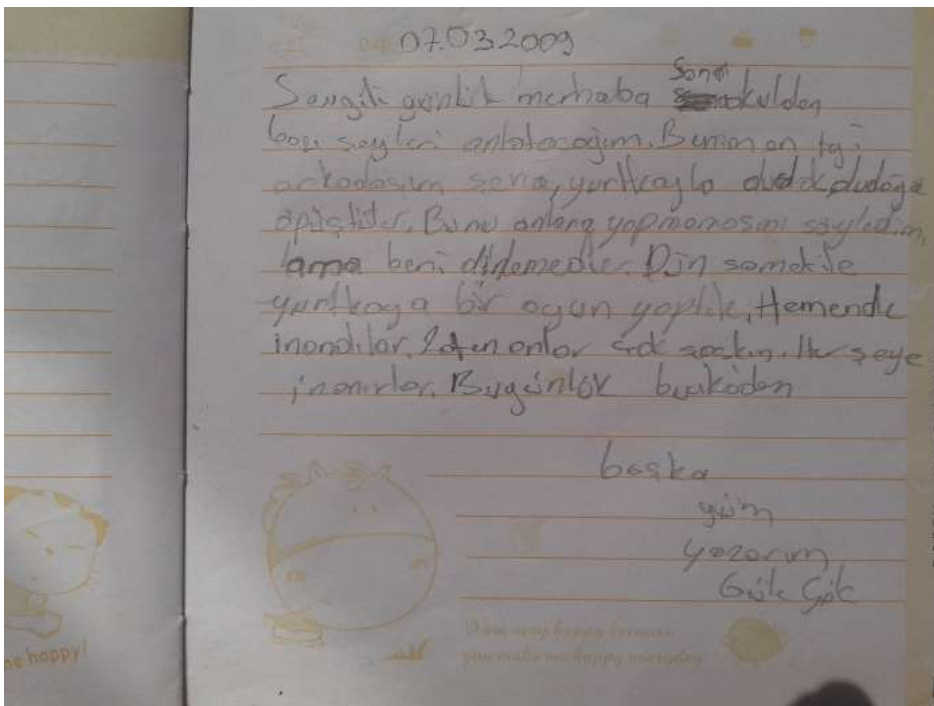 07.03.2009
Sevgili günlük merhaba Sana okuldan
bazı şeyleri anlatacağım. Benim en iyi
arkadaşım sena, yurtkayla dudak dudağa
öpüştüler. Bunu yapmamasını söyledim,
ama beni dinlemediler. Dün ile
yurtkaya bir oyun yaptık, Hemende
inandılar. Zaten onlar çok şaşkın. Her şeye
inanırlar. Bugünlük bukadar
başka
gün
yazarım
me happy!
I am very happy because
you make me happy everyday